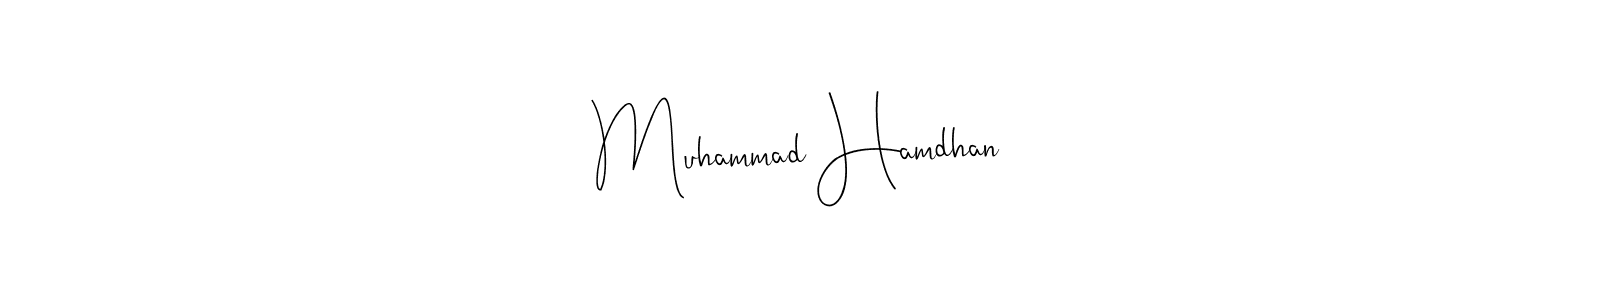 Muhammad Hamdhan